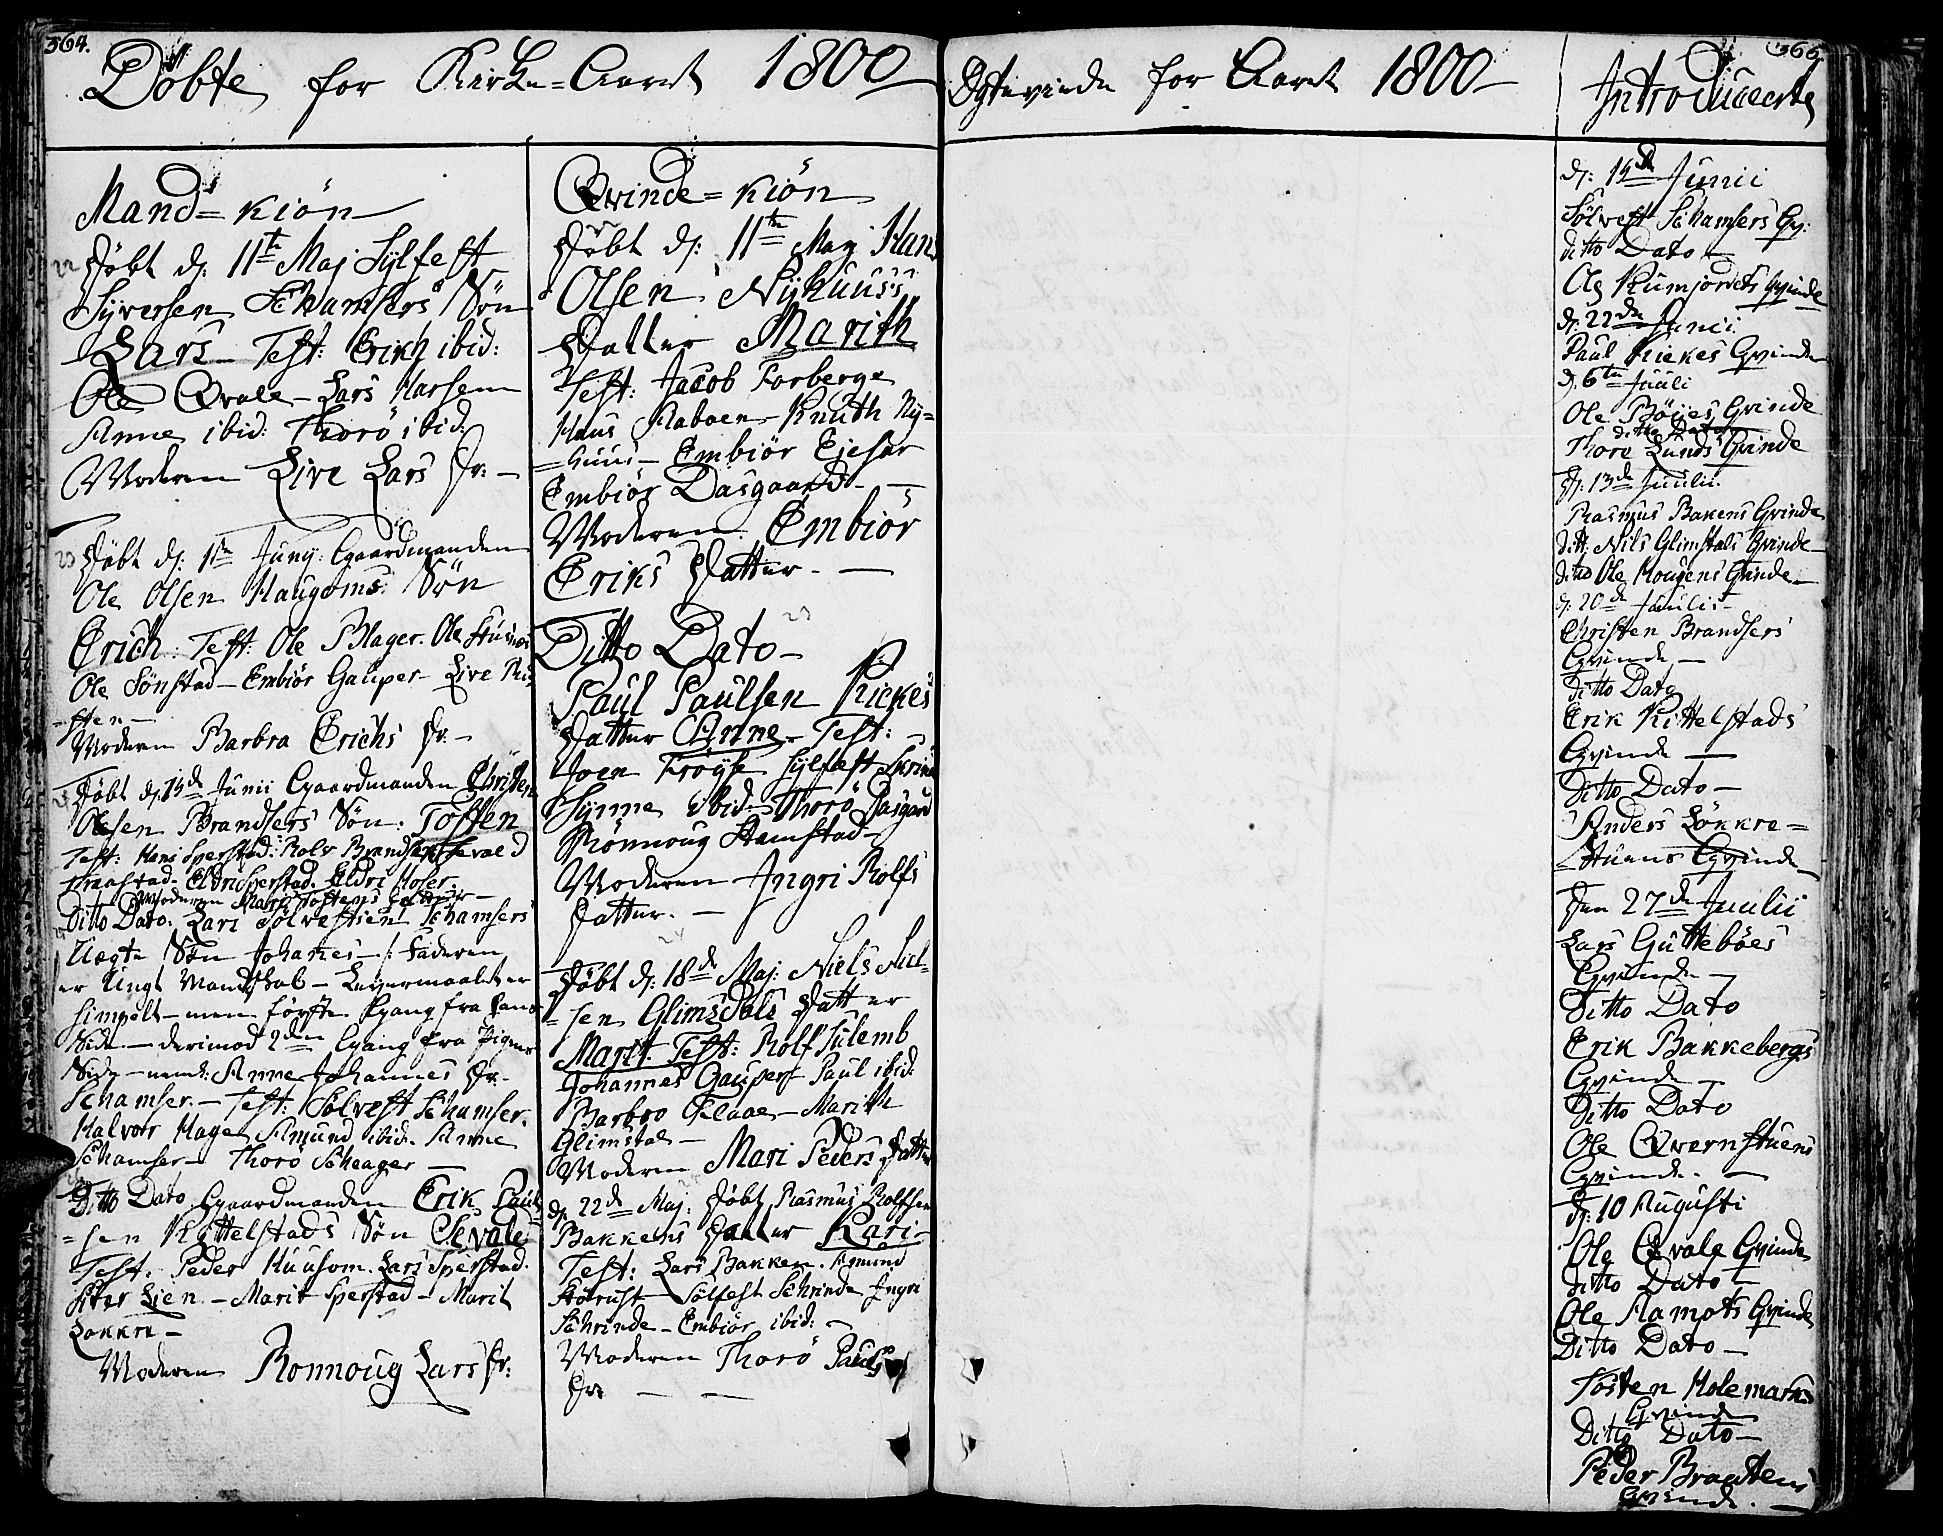 364.
Döbte for Kirke=Aaret 1800
Mand=kiön
22 Döbt d: 11te Maj Sylfest
Syversen Schamsers Sön
Lars Test: Erich ibid:
Ole Qvale - Lars Harsem
Anne ibid: Thorö ibid:
Moderen Live Lars Dr: -
23 Döbt d: 1te Juny: Gaardmanden
Ole Olsen Haugoms Sön
Erich. Test: Ole Blager. Ole
Ole Sönstad - Embiör Gauper - Live
=sten -
Moderen Barbra Erichs Dr. -
Döbt d: 15de Junii Gaardmanden Christen
Olesen Brandsers Sön: Tosten
Test: Hans Sperstad: Rolv Brandser
Eldri Sperstad. Eldri Moser.
Moderen Marit Tostens
Ditto Dato. Lars Sölvestsen Schamsers
Uægte Sön Johanes - /: Faderen
er Ungt Mandskab - Leiermaalet er
simpelt - men förste Gang fra hans
Side - derimod 2den Gang fra Pigens
Side - neml: Anne Johannes Dr. -
Schamser. - Test: Sölvest Schamser.
Halvor Hage Amund ibid. Anne
Schamser - Thorö Scheager -
Ditto Dato Gaardmanden Erik Paul
=sen Kittelstads Sön Sevald
Test: Peder Huusom. Lars Sperstad.
Siver Lien. - Marit Sperstad - Marit
Lökkre -
Moderen Ronnoug Lars Dr:
Qvinde=kiön
Döbt d: 11te Maj Hans
Olsen Nyhuus's
Datter Marith
Test: Jacob Forberge
Haus Raboen - Knuth Ny=
=huus - Embiör
Embiör Dasgaard -
Moderen Embiör
Eriks Datter. -
23
Ditto Dato -
Paul Paulsen Kiekes
Datter Anne - Test:
Joen Fröyse Sylfest
Synne ibid - Thorö Dasgard
Rönnoug Hamstad -
Moderen Ingri Rolfs
Datter. -
24
Döbt d: 18de Maj: Niels Niel=
=sen Glimsdals Datter
Marit. Test: Rolf Sulemb
Johannes Gauper Paul ibid:
Barbro Klaae - Marith
Glimstal -
Moderen Mari Peders Datter
d: 22de Maj: Döbt Rasmus Rolfsen
Bakkens Datter Kari -
Test: Lars Bakken. Amund
Storust Sölfest Schrinde Ingri
Schrinde - Embiör ibid: -
Moderen Thorö Pauls
Dr -
Ægtevinde for Aaret 1800
366
Introducerte
d: 15de Junii
Sölvest Schamsers Qv:
Ditto Dato -
Ole Qvinde
d: 22de Junii
Paul Kiekes Qvinde
d. 6te Juuli
Ole Böyes Qvinde
ditto Dato
Thore Lunds Qvinde
d: 13de Juulii
Rasmus Bakens Qvinde
ditt: Nils Glimstals Qvinde -
ditto Ole Hougens Qvinde -
d: 20de Juulii -
Christen Brandsers
Qvinde -
Ditto Dato
Erik Kittelstads
Qvinde -
Ditto Dato -
Anders Lökkre=
=stuens Qvinde
Den 27de Juulii
Lars Gutteböes
Qvinde -
Ditto Dato
Erik Bakkebergs
Qvinde -
Ditto Dato
Ole Qvernstuens
Qvinde. -
d: 10 Augusti
Ole Qvale Qvinde
Ditto Dato -
Ole Aamots Qvinde
Ditto Dato -
Tosten Holemarks
Qvinde
Ditto Dato -
Peder Braatens
Qvinde. -